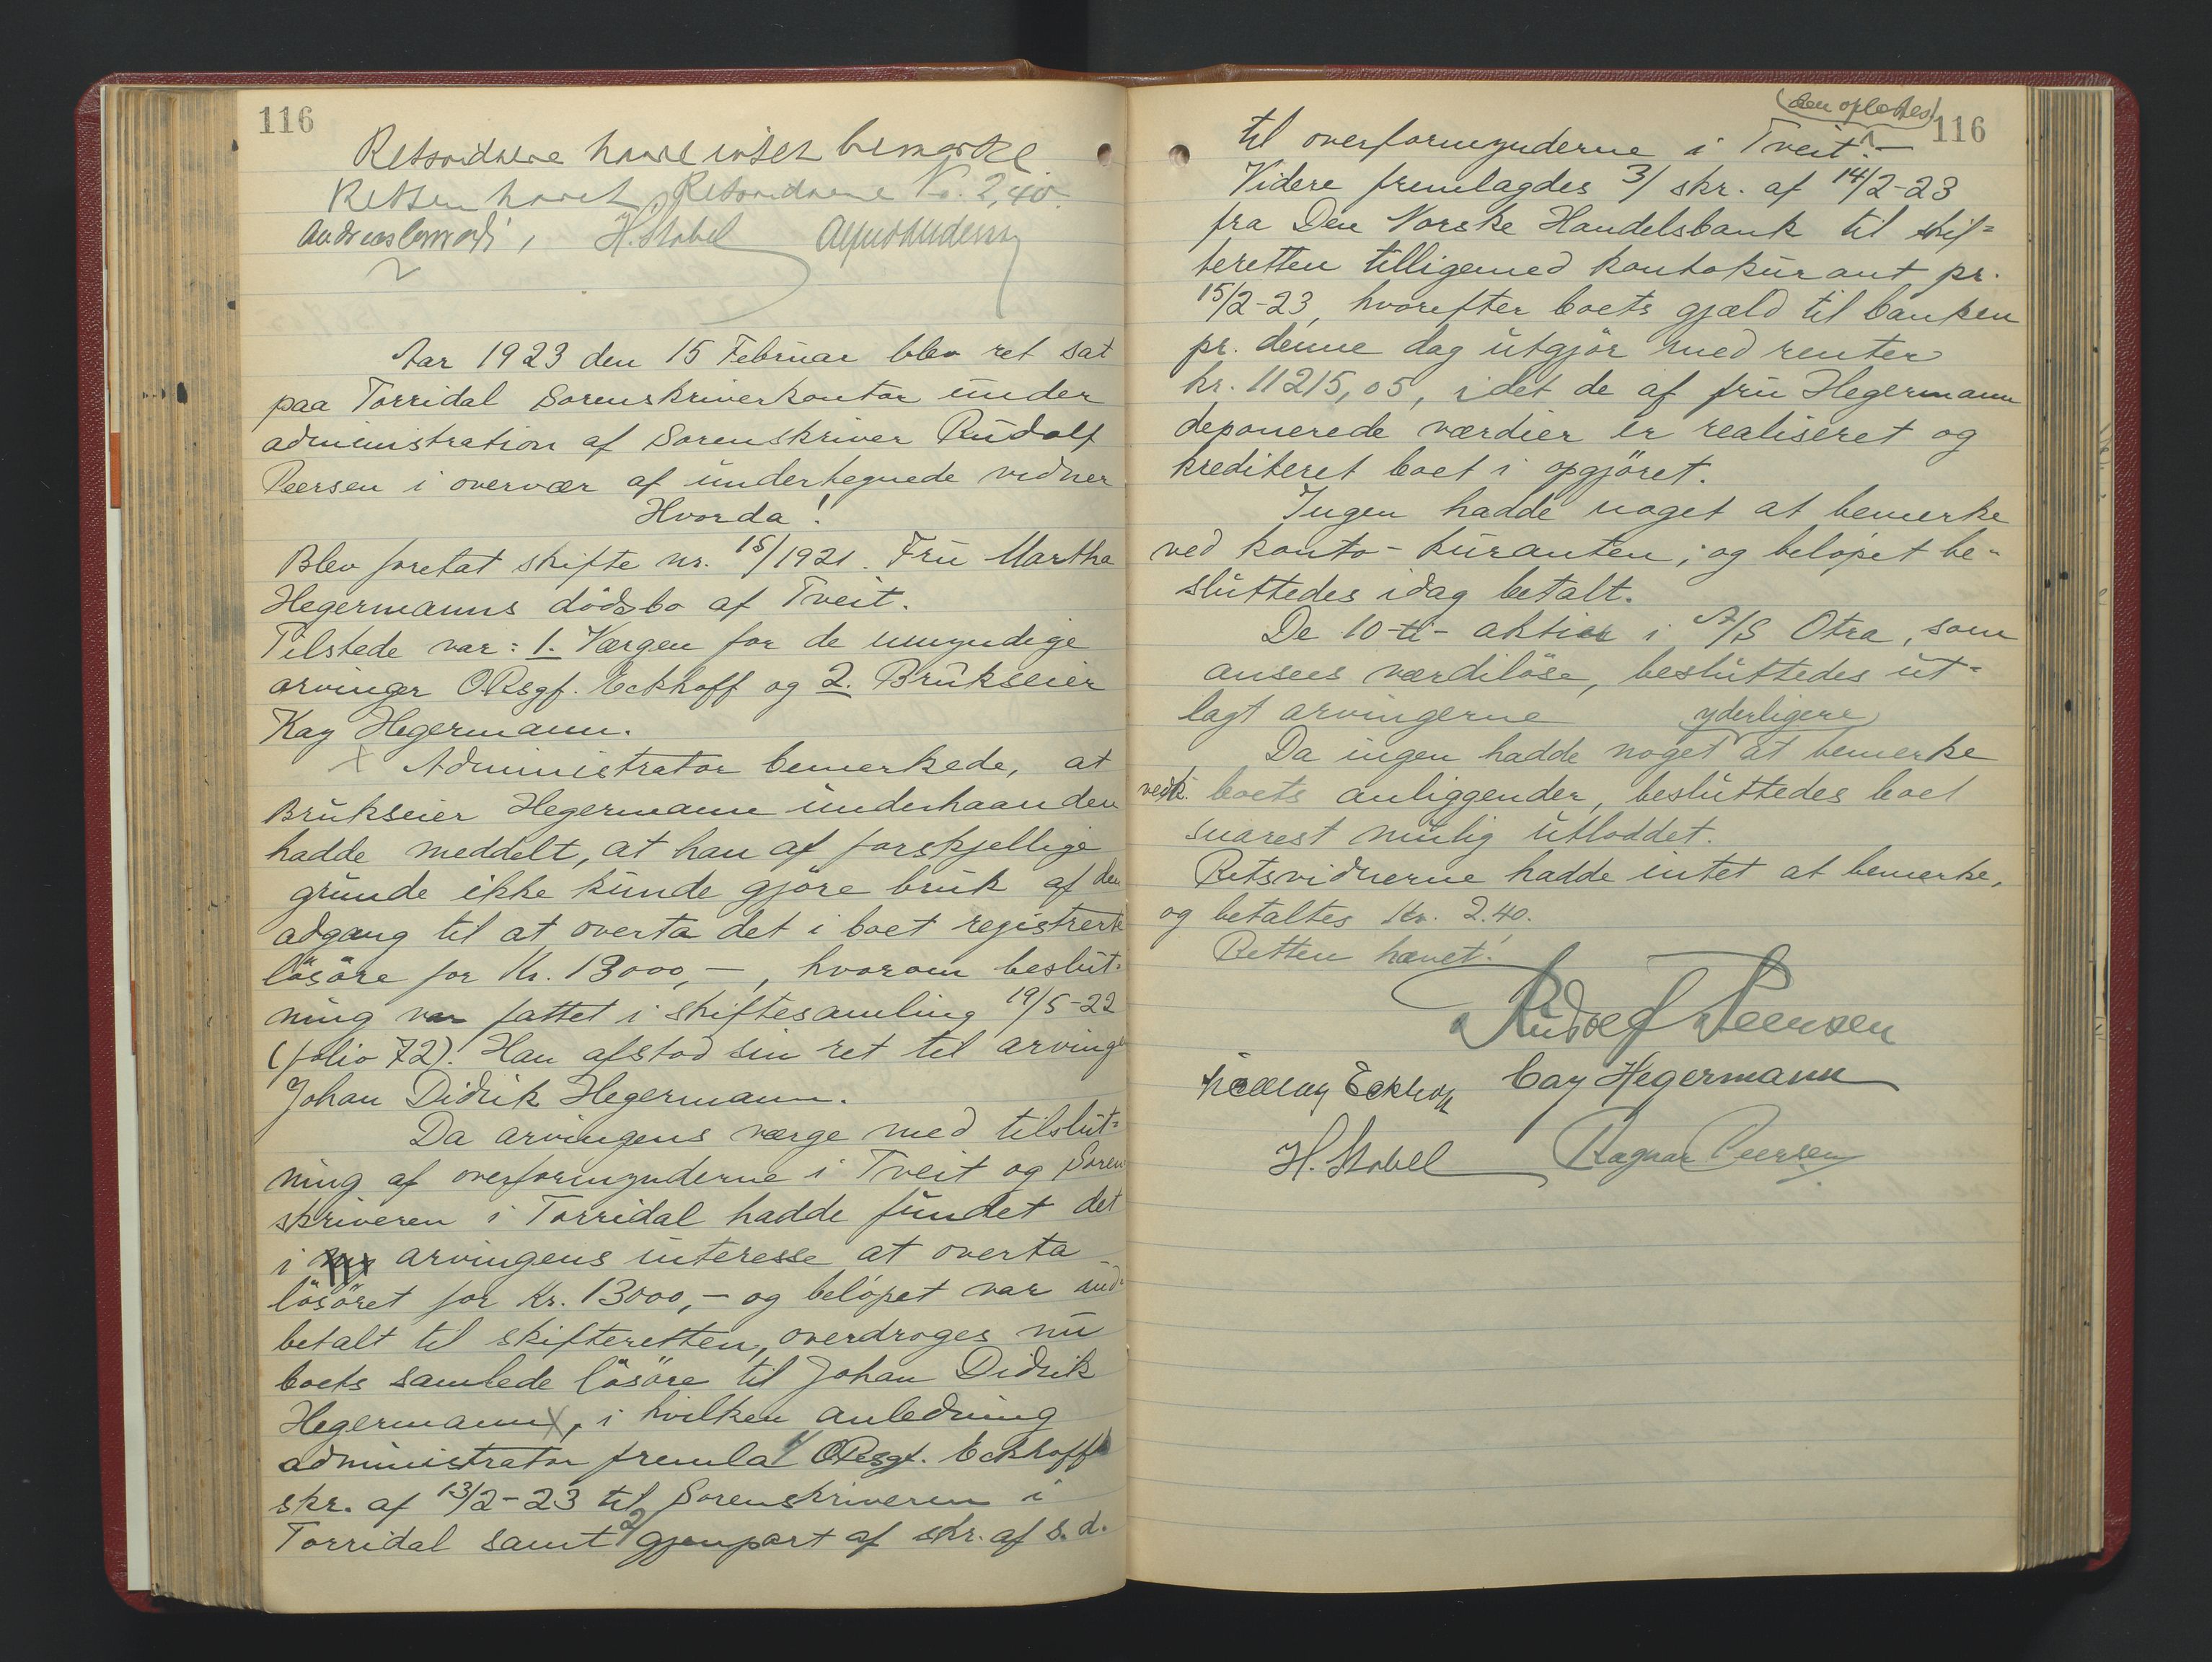 116
Retsvidnene havde intet bemerke
Retten hævet. Retsvidnene Kr. 2,40.
H. Stabel
Aar 1923 den 15 Februar blev ret sat
paa Torridal Sorenskriverkontor under
administration af Sorenskriver Rudolf
Peersen i overvær af undertegnede vidner
Hvorda!
Blev foretat skifte nr. 15/1921. Fru Martha
Hegermanns dödsbo af Tveit.
Tilstede var: 1. Værgen for de umyndige
arvinger ORsgf. Eckhoff og 2. Brukseier
Kay Hegermann.
X Administrator bemerkede, at
Brukseier Hegermann underhaanden
hadde meddelt, at han af forskjellige
grunde ikke kunde gjöre bruk af den
adgang til at overta det i boet registrerte
lösöre for Kr. 13000,-, hvorom beslut-
ning var fattet i skiftesamling 19/5-22
(folio 72). Han afstod sin ret til arving
Johan Didrik Hegermann.
Da arvingens værge med tilslut-
ning af overformynderne i Tveit og Soren
skriveren i Torridal hadde fundet det
i arvingens interesse at overta
lösöret for Kr. 13000,- og belöpet var ind-
betalt til skifteretten, overdroges nu
boets samlede lösöre til Johan Didrik
Hegermann X, i hvilken anledning
administrator fremla 1/ ORsgf. Eckhoffs
skr. af 13/2-23 til Sorenskriveren i
Torridal samt 2/ gjenpart af skr. af s.d.
116
(den oplæstes)
til overformynderne i Tveit. -
Videre fremlagdes 3/ skr. af 14/2-23
fra Den Norske Handelsbank til skif-
teretten tilligemed kontokurant pr.
15/2-23, hvorefter boets gjæld til banken
pr. denne dag utgjör med renter
kr. 11215,05, idet de af fru Hegermann
deponerede værdier er realiseret og
krediteret boet i opgjöret.
Ingen hadde noget at bemerke
ved konto-kuranten; og belöpet be-
sluttedes idag betalt.
De 10-ti- aktier i A/S Otra, som
ansees værdilöse, besluttedes ut-
lagt arvingerne
yderligere
Da ingen hadde noget at bemerke
vedk. boets anliggender, besluttedes boet
snarest mulig utloddet.
Retsvidnerne hadde intet at bemerke,
og betaltes Kr. 2.40.
Retten hævet!
Rudolf Peersen
Eckhoff Cay Hegermann
H. Stabel Ragnar Peersen